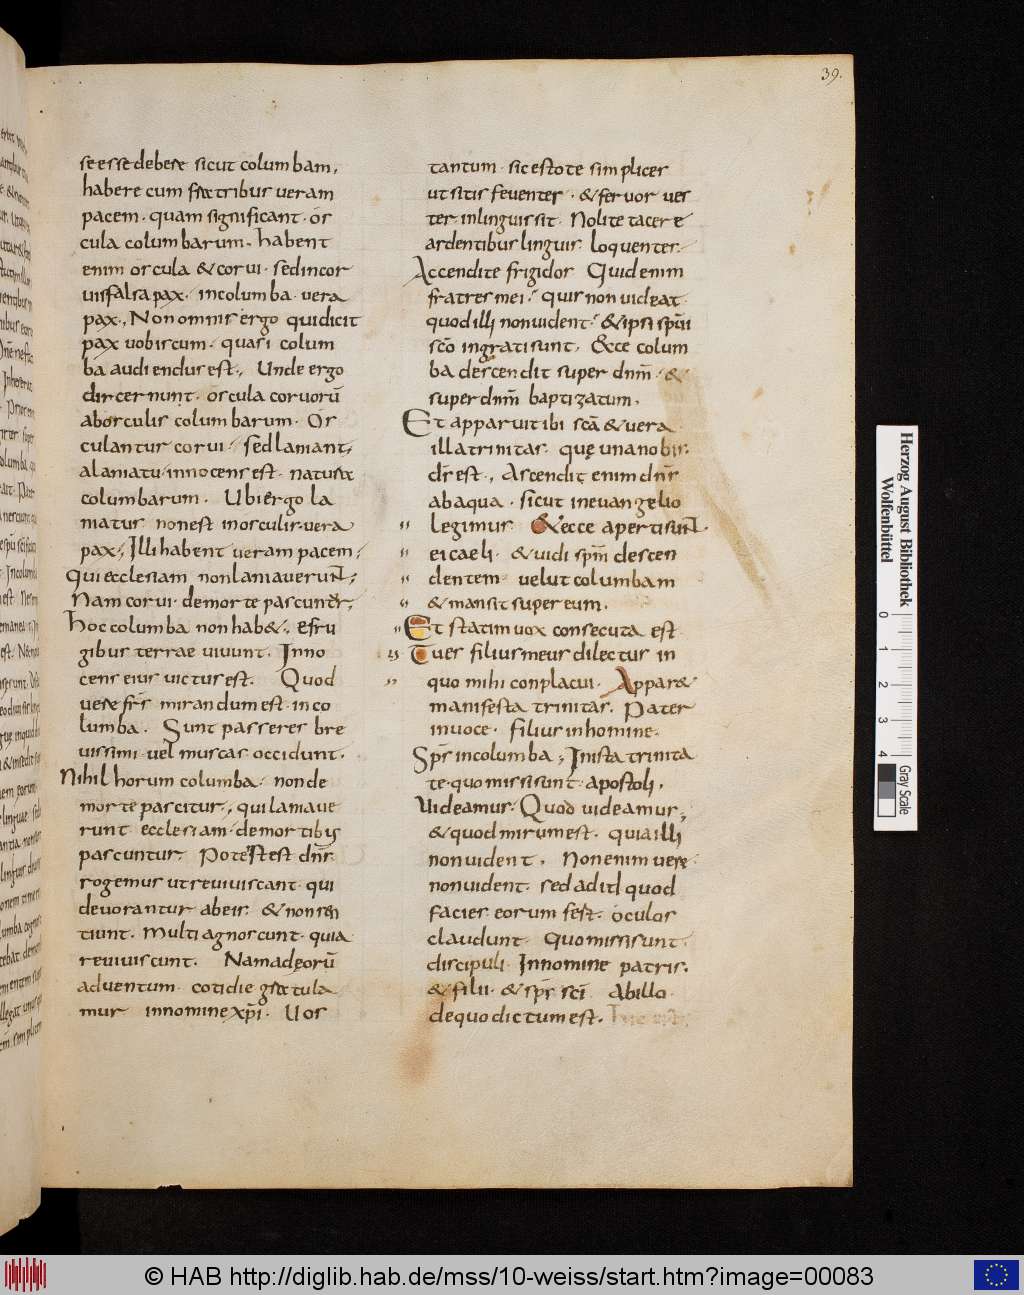 39.
se esse debere sicut columbam,
habere cum fratribus veram
pacem · quam significant · os
cula columbarum · habent
enim oscula & corvi · sed in cor
vis falsa pax · in columba vera
pax ·, Non omnis ergo qui dicit
pax vobiscum · quasi colum
ba audiendus est ·, Unde ergo
discernunt · oscula corvorū
ab osculis columbarum · Os
culantur corvi · sed laniant ·
a laniatu innocens est · natura
columbarum · Ubi ergo la
niatur non est in osculis vera
pax ; Illi habent veram pacem ;
Qui ecclesiam non laniaverunt ;
Nam corvi · de morte pascuntur ;
hoc columba non hab& ·, e fru
gibus terrae vivunt · Inno
cens eius victus est · Quod
vere frs mirandum est · in co
lumba · Sunt passeres bre
vissimi · vel muscas occidunt ·
Nihil horum columba · non de
morte pascitur ·, qui laniave
runt ecclesiam · de mortibus
pascuntur · Potest est dns
rogemus ut reviviscant · qui
devorantur ab eis · & non sen
tiunt · Multi agnoscunt · quia
reviviscunt · Nam ad eorū
adventum · cotidie gratula
mur in nomine xpi · Vos
tantum · sic estote simplices
ut sitis ferventes · & fervor ves
ter in linguis sit · Nolite tacere
ardentibus linguis loquentes ·
Accendite frigidos Quid enim
fratres mei · quis non videat ·
quod illi non vident · & ipsi spui
sco ingrati sunt · Ecce colum
ba descendit super dnm · &
super dnm baptizatum ·
Et apparuit ibi sca & vera
illa trinitas · quę una nobis
ds est ·, Ascendit enim dns
ab aqua · sicut in evangelio
legimus & ecce aperti sunt ·
ei caeli · & vidi spm descen
dentem velut columbam
& mansit super eum ·
Et statim vox consecuta est
Tu es filius meus dilectus in
quo mihi conplacui · Appar&
manifesta trinitas · Pater
in voce · filius in homine ·
Sps in columba ; In ista trinita
te · quo missi sunt apostoli ·
Videamus · Quod videamus ;
& quod mirum est · quia illi
non vident · Non enim vere
non vident · sed ad id quod
facies eorum fert · oculos
claudunt · Quo missi sunt ·
discipuli · In nomine patris ·
& filii · & sps sci Ab illo ·
de quo dictum est · hic est
Herzog August Bibliothek
Wolfenbüttel
0 1 2 3 4
Gray Scale
© HAB http://diglib.hab.de/mss/10-weiss/start.htm?image=00083